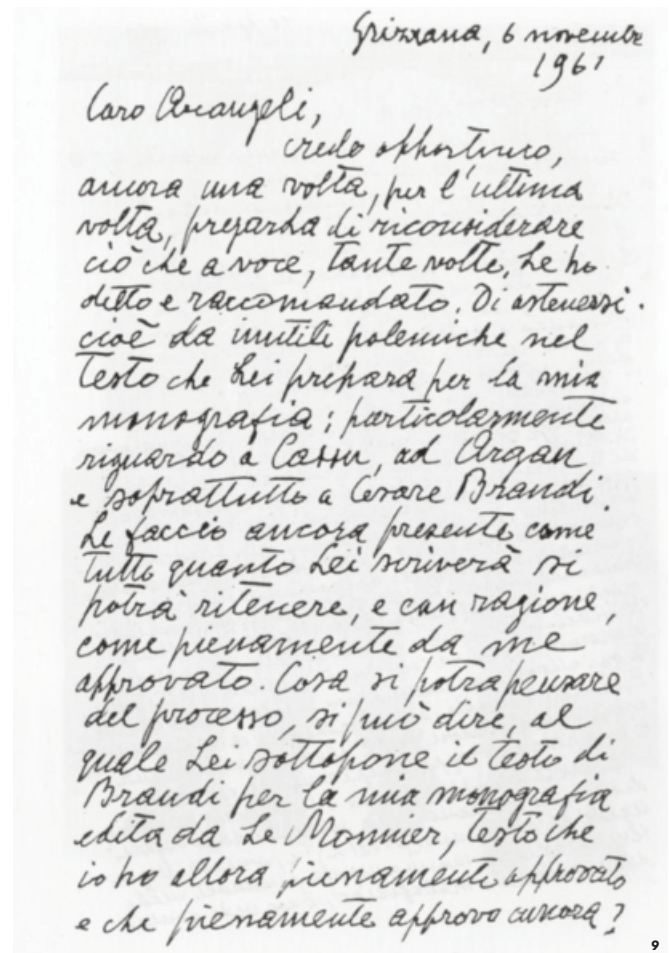 Grizzana, 6 novembre
1961
Caro Arcangeli,
credo opportuno,
ancora una volta, per l'ultima
volta, pregarLa di riconsiderare
ciò che a voce, tante volte, Le ho
detto e raccomandato. Di astenersi
cioè da inutili polemiche nel
testo che Lei prepara per la mia
monografia; particolarmente
riguardo a Cassou, ad Argan
e soprattutto a Cesare Brandi.
Le faccio ancora presente come
tutto quanto Lei scriverà si
potrà ritenere, e con ragione,
come pienamente da me
approvato. Cosa si potrà pensare
del processo, si può dire, al
quale Lei sottopone il testo di
Brandi per la mia monografia
edita da Le Monnier, testo che
io ho allora pienamente approvato
e che pienamente approvo ancora?
9